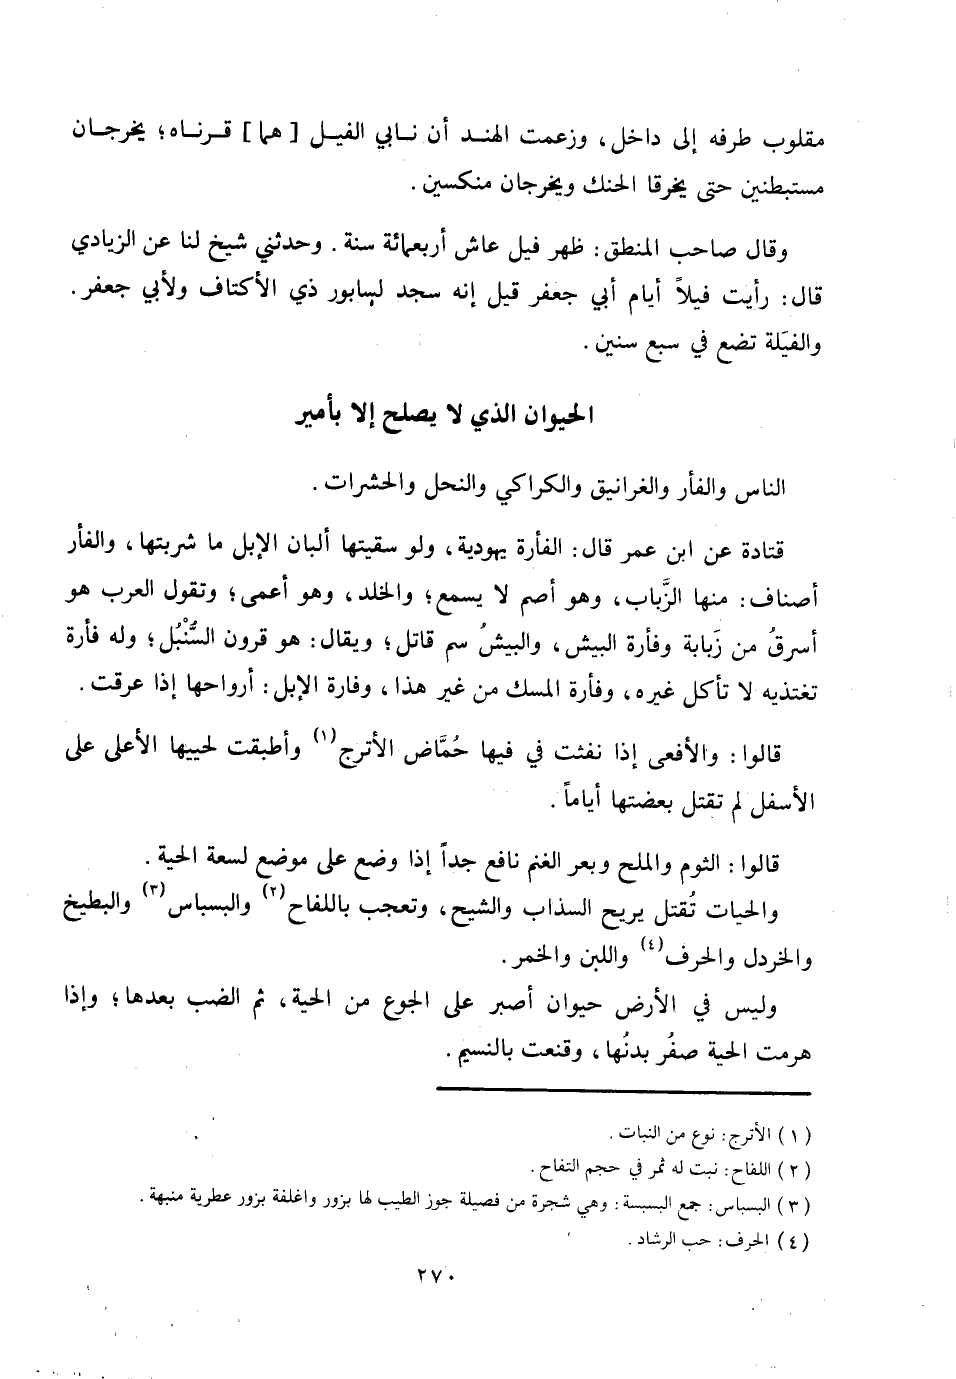 مقلوب طرفه إلى داخل، وزعمت الهند أن نابي الفيل [ هما ] قرناه؛ يخرجان
مستبطنين حتى يخرقا الحنك ويخرجان منكسين.
وقال صاحب المنطق: ظهر فيل عاش أربعمائة سنة. وحدثني شيخ لنا عن الزيادي
قال: رأيت فيلاً أيام أبي جعفر قيل إنه سجد لسابور ذي الأكتاف ولأبي جعفر.
والفيَلة تضع في سبع سنين.
الحيوان الذي لا يصلح إلا بأمير
الناس والفأر والغرانيق والكراكي والنحل والحشرات.
قتادة عن ابن عمر قال: الفأرة يهودية، ولو سقيتها ألبان الإبل ما شربتها، والفأر
أصناف: منها الزَّباب، وهو أصم لا يسمع؛ والخلد، وهو أعمى؛ وتقول العرب هو
أسرقُ من زَبابة وفأرة البيش، والبيشُ سم قاتل؛ ويقال: هو قرون السُّنْبُل؛ وله فأرة
تغتذيه لا تأكل غيره، وفأرة المسك من غير هذا، وفارة الإبل: أرواحها إذا عرقت.
قالوا: والأفعى إذا نفثت في فيها حُمَّاض الأترج(١) وأطبقت لحييها الأعلى على
الأسفل لم تقتل بعضتها أياماً.
قالوا: الثوم والملح وبعر الغنم نافع جداً إذا وضع على موضع لسعة الحية.
والحيات تُقتل بريح السذاب والشيح، وتعجب باللفاح(٢) والبسباس(٣) والبطيخ
والخردل والحرف(٤) واللبن والخمر.
وليس في الأرض حيوان أصبر على الجوع من الحية، ثم الضب بعدها؛ وإذا
هرمت الحية صفُر بدنُها، وقنعت بالنسيم.
(١) الأترج: نوع من النبات.
(٢) اللفاح: نبت له ثمر في حجم التفاح.
(٣) البسباس: جمع البسبسة: وهي شجرة من فصيلة جوز الطيب لها بزور واغلفة بزور عطرية منبهة.
(٤) الحرف: حب الرشاد.
٢٧٠